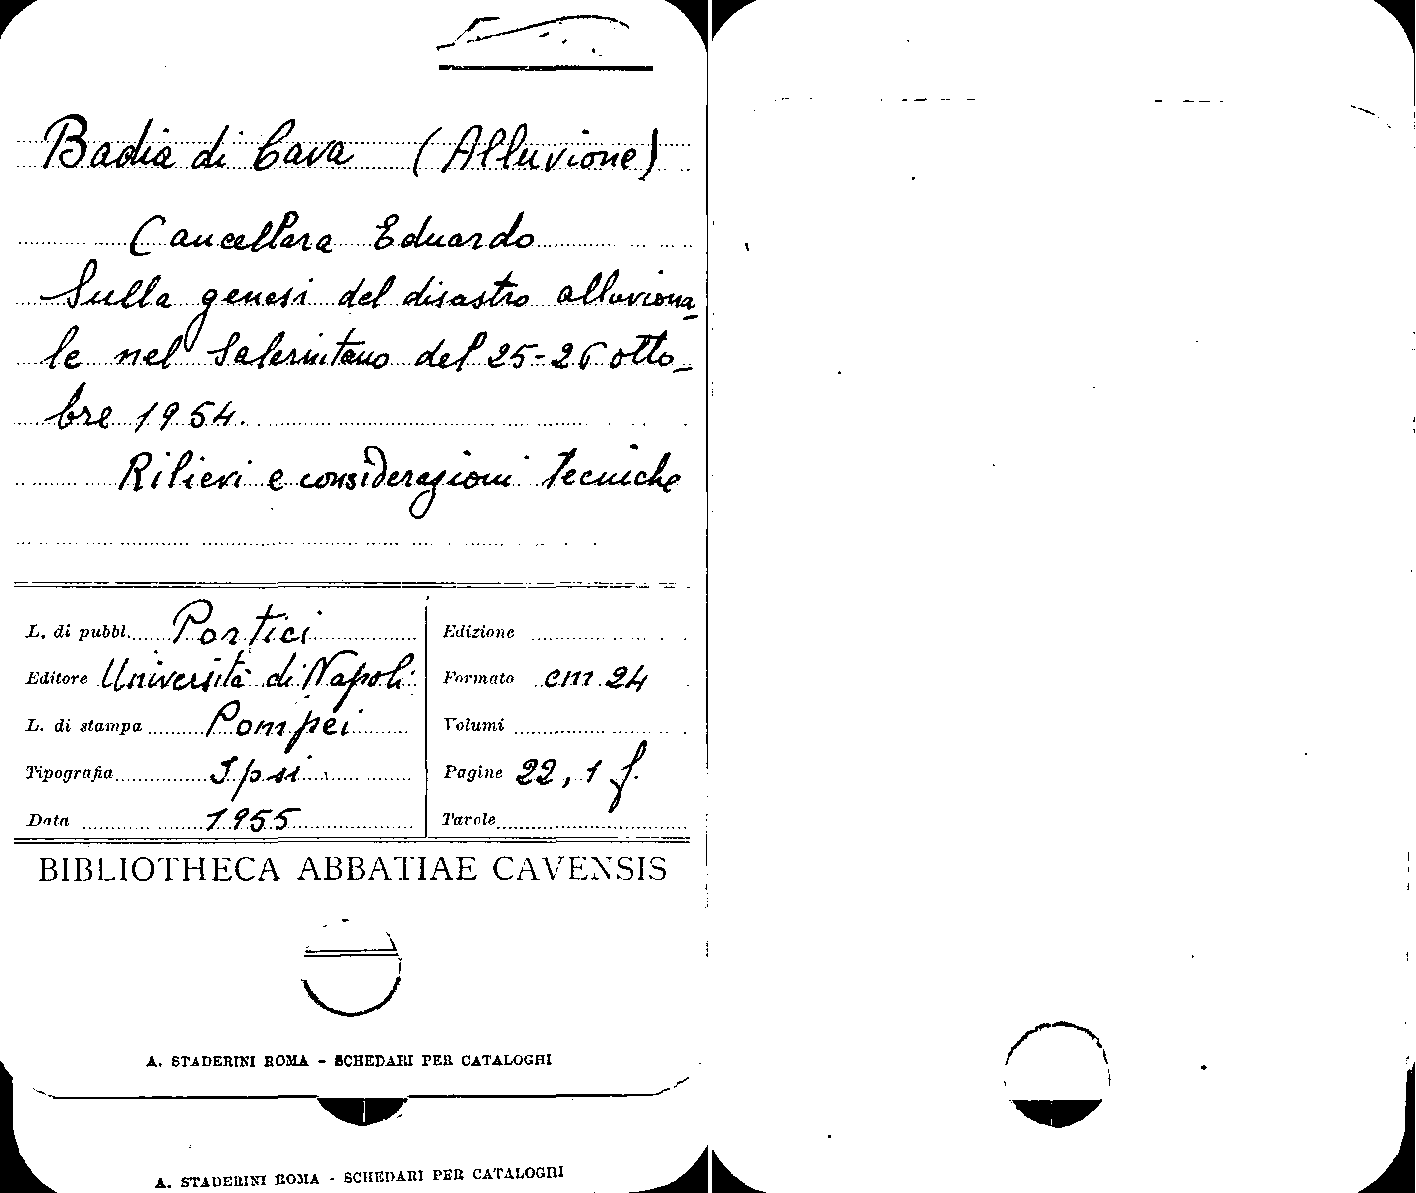 Badia di Cava (Alluvione)
Cancellara Eduardo
Sulla genesi del disastro alluviona_
le nel Salernitano del 25-26 otto_
bre 1954.
Rilieri e considerazioni tecniche
L. di pubbl. Portici
Editore Università di Napoli
L. di stampa Pompei
Tipografia Ipsi
Data 1955
Edizione
Formato cm 24
Volumi
Pagine 22, 1 f.
Tavole
BIBLIOTHECA ABBATIAE CAVENSIS
A. STADERINI ROMA - SCHEDARI PER CATALOGHI
A. STADERINI ROMA - SCHEDARI PER CATALOGHI